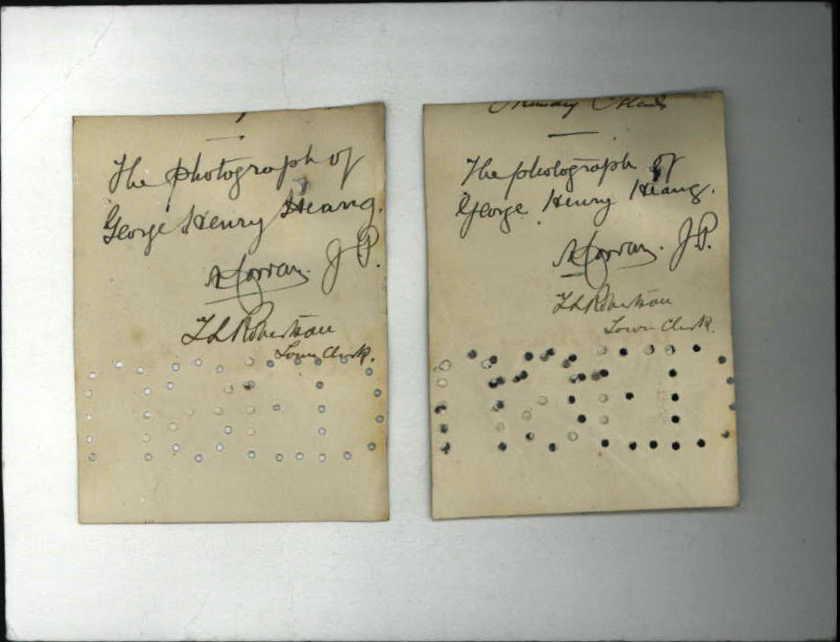 The photograph of
George Henry Heang.
J.P.
T L Robertson
Town Clerk.
The photograph of
George Henry Heang.
J.P.
T L Robertson
Town Clerk.